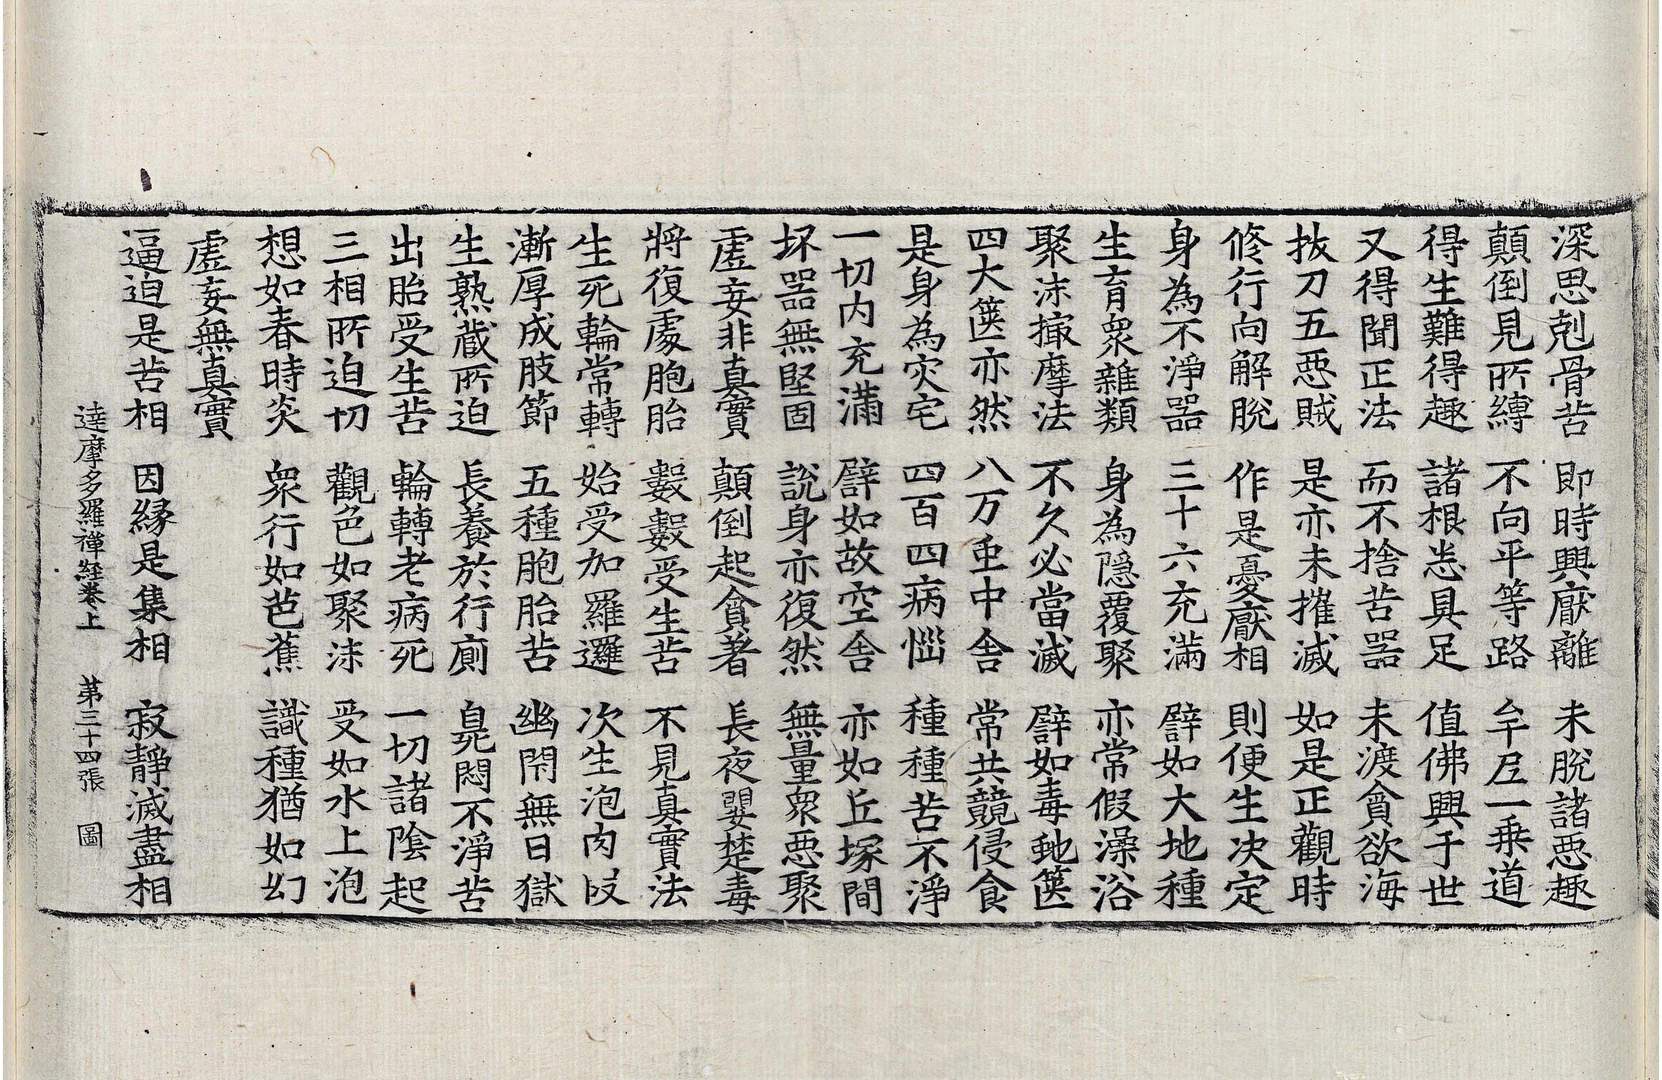 深思剋骨苦　即時興厭離　未脫諸惡趣
顛倒見所縛　不向平等路　牟尼一乗道
得生難得趣　諸根悉具足　值佛興于世
又得聞正法　而不捨苦器　未渡貪欲海
拔刀五惡賊　是亦未摧滅　如是正觀時
修行向解脫　作是憂厭相　則便生決定
身為不淨器　三十六充滿　譬如大地種
生育衆雜類　身為隱覆聚　亦常假澡浴
聚沫撮摩法　不久必當滅　譬如毒虵篋
四大篋亦然　八万虫中舍　常共競侵食
是身為灾宅　四百四病惱　種種苦不淨
一切内充滿　譬如故空舍　亦如丘塚間
坏器無堅固　說身亦復然　無量衆惡聚
虛妄非真實　顛倒起貪著　長夜嬰楚毒
將復處胞胎　數數受生苦　不見真實法
生死輪常轉　始受加羅邏　次生泡肉段
漸厚成肢節　五種胞胎苦　幽閇無日獄
生熟藏所迫　長養於行廁　臭悶不淨苦
出胎受生苦　輪轉老病死　一切諸陰起
三相所迫切　觀色如聚沫　受如水上泡
想如春時炎　衆行如芭蕉　識種猶如幻
虛妄無真實
逼迫是苦相　因緣是集相　寂靜滅盡相
達摩多羅禪経卷上　第三十四張　圖